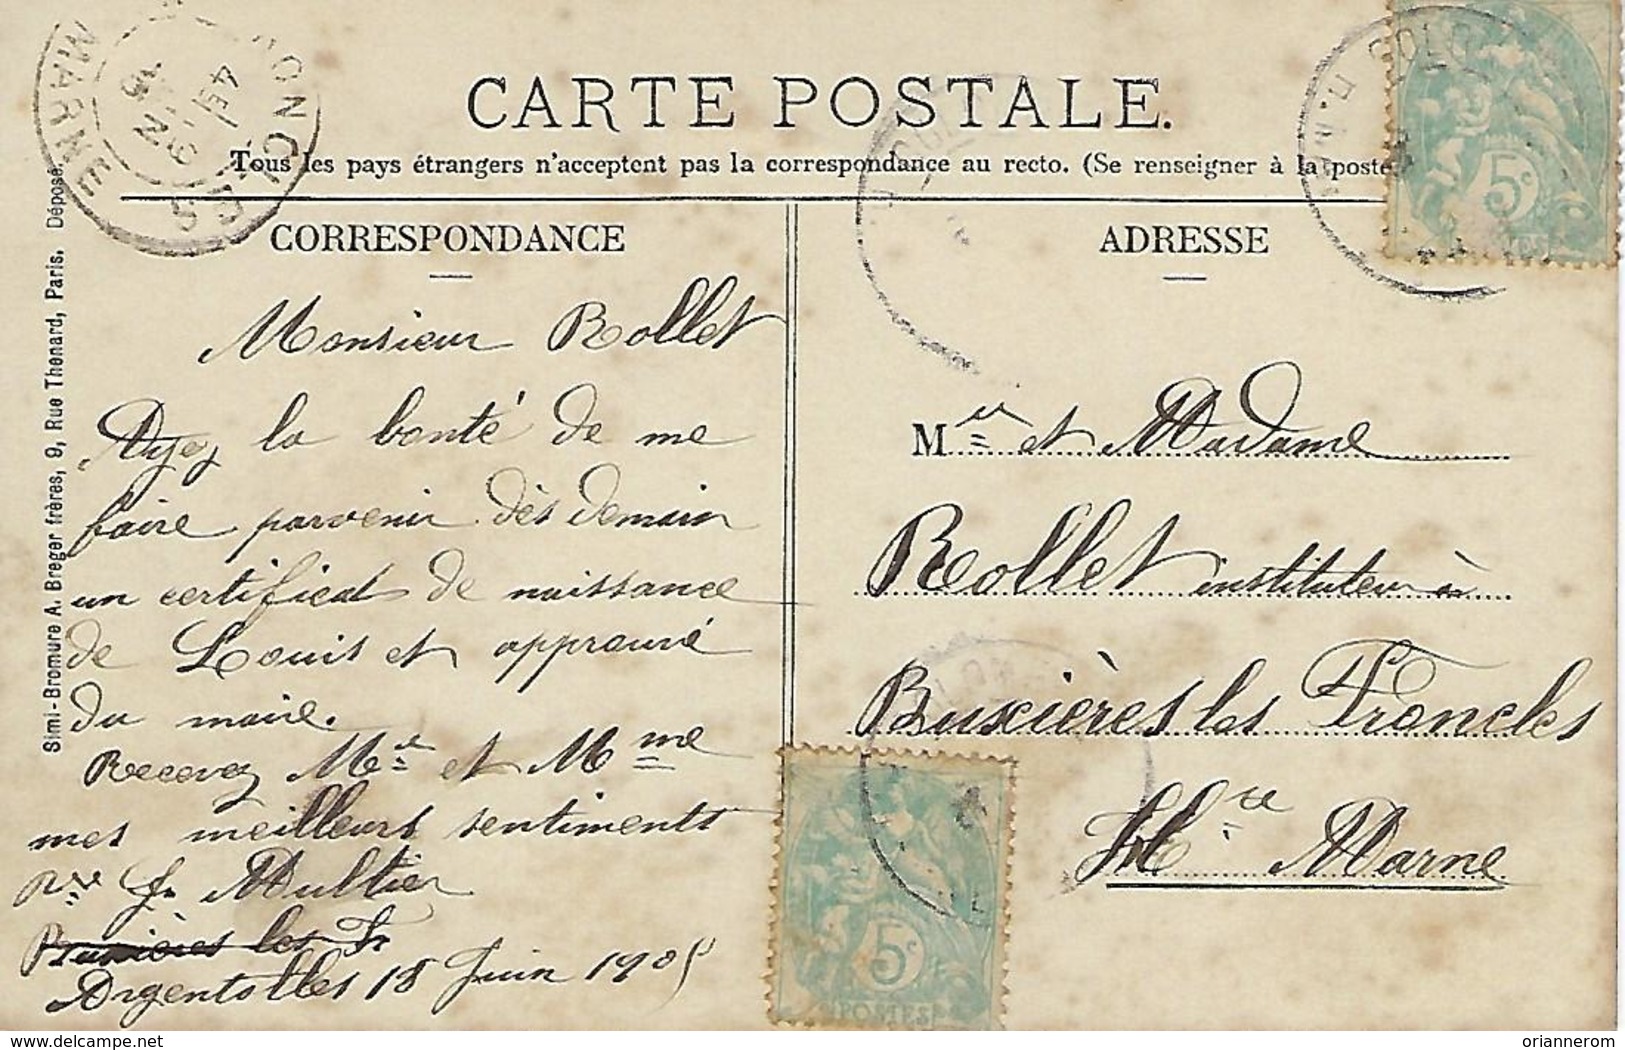 CARTE POSTALE.
Tous les pays étrangers n'acceptent pas la correspondance au recto. (Se renseigner à la poste
CORRESPONDANCE
Monsieur Rollet
Ayez la bonté de me
faire parvenir dès demain
un certificat de naissance
de Louis et approuvé
du maire.
Recevez Mr et Mme
mes meilleurs sentiments
Multier
Buxières les Fr
Argentolles 18 Juin 1905
ADRESSE
Mr et Madame
Rollet instituteur à
Buxières les Froncles
Hte Marne
Simi-Bromure A. Breger frères, 9, Rue Thenard, Paris. Déposé.
MARNE
5c
5c
POSTES
www.delcampe.net
oriannerom